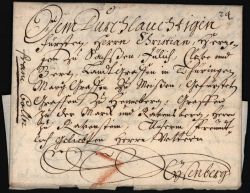 24
Dem Durchlauchtigen
Fürsten, Herrn Christian, Herzo-
gen zu Sachßen Jülich, Cleve und
Berg, Landt Graffen in Thüringen
Marg Graffen zu Meißen, Gefürsten
Graffen zu Henneberg, Graffen
zu der Marck und Ravensberg Herrn
zu Ravenstein, Unserm freund-
lich Geliebten Herrn Vettern
Eysenberg